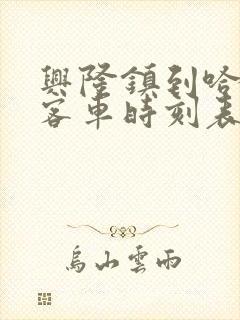 興隆鎮到哈
客車時刻表
烏山雲雨